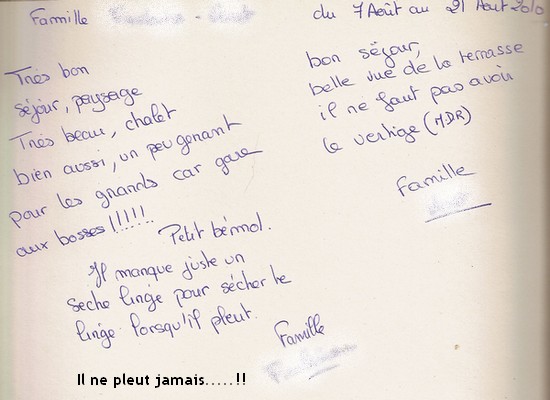 Famille
du 7 Août au 21 Aout 2010
Très bon
séjour, paysage
Très beau, chalet
bien aussi, un peu genant
pour les grands car gare
aux bosses!!!!!
Petit bémol.
Il manque juste un
seche linge pour sécher le
linge lorsqu'il pleut.
Famille
bon séjour,
belle vue de la terrasse
il ne faut pas avoir
le vertige (MDR)
Famille
Il ne pleut jamais.....!!